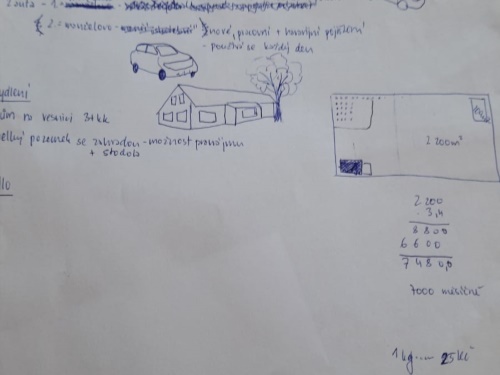 auta - 1.
2. - manželova - nové, pracovní + havarijní pojištění
- používá se každý den
ydlení
ům na vesnici 3+kk
elký pozemek se zahradou - možnost pronájmu
+ stodola
2 200 m²
2 200
. 3,4
8 8 0 0
6 6 0 0
7 4 8 0,0
7000 měsíčně
1 kg .... 25 Kč